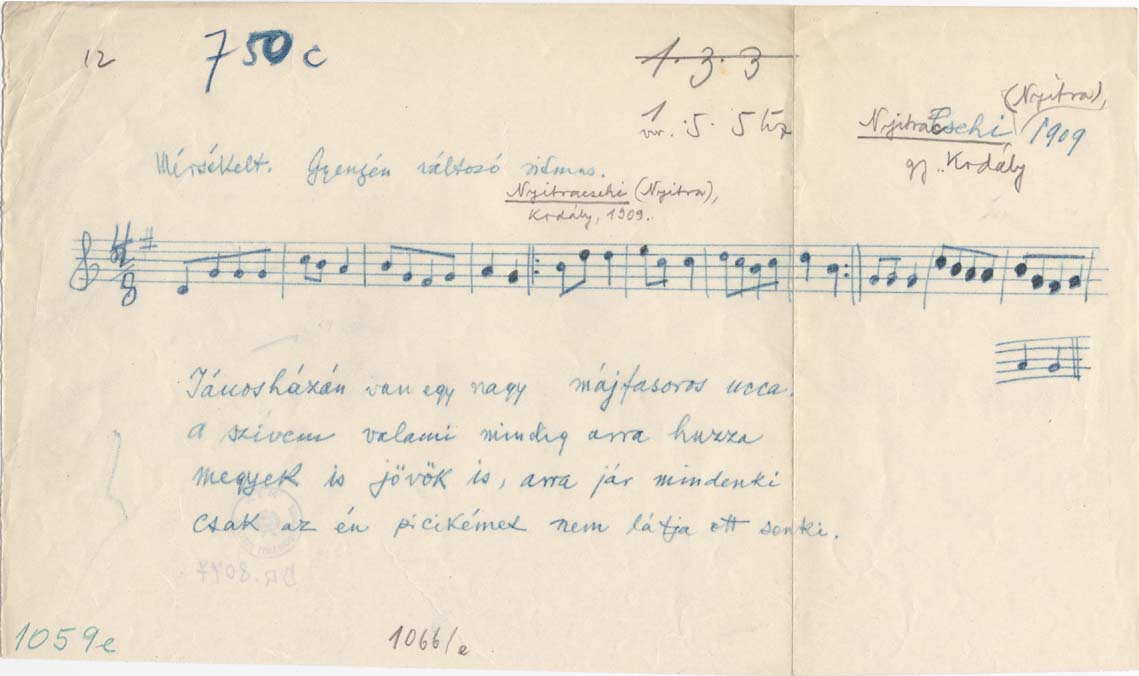 12
750c
1. 3. 3
1
5. 5
(Nyitra),
Nyitracsehi 1909
gy. Kodály
Mérsékelt. Gyengén változó ritmus.
Nyitracsehi (Nyitra),
Kodály, 1909.
8
Jánosházán van egy nagy májfasoros ucca.
A szivem valami mindig arra huzza
megyek is jövök is, arra jár mindenki
csak az én picikémet nem látja ott senki.
1059e
1066/e